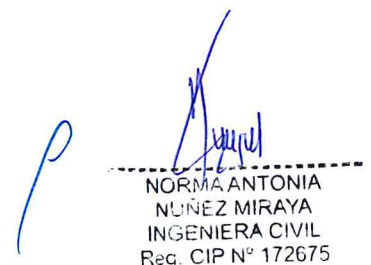 NORMA ANTONIA
NUÑEZ MIRAYA
INGENIERA CIVIL
Reg. CIP Nº 172675